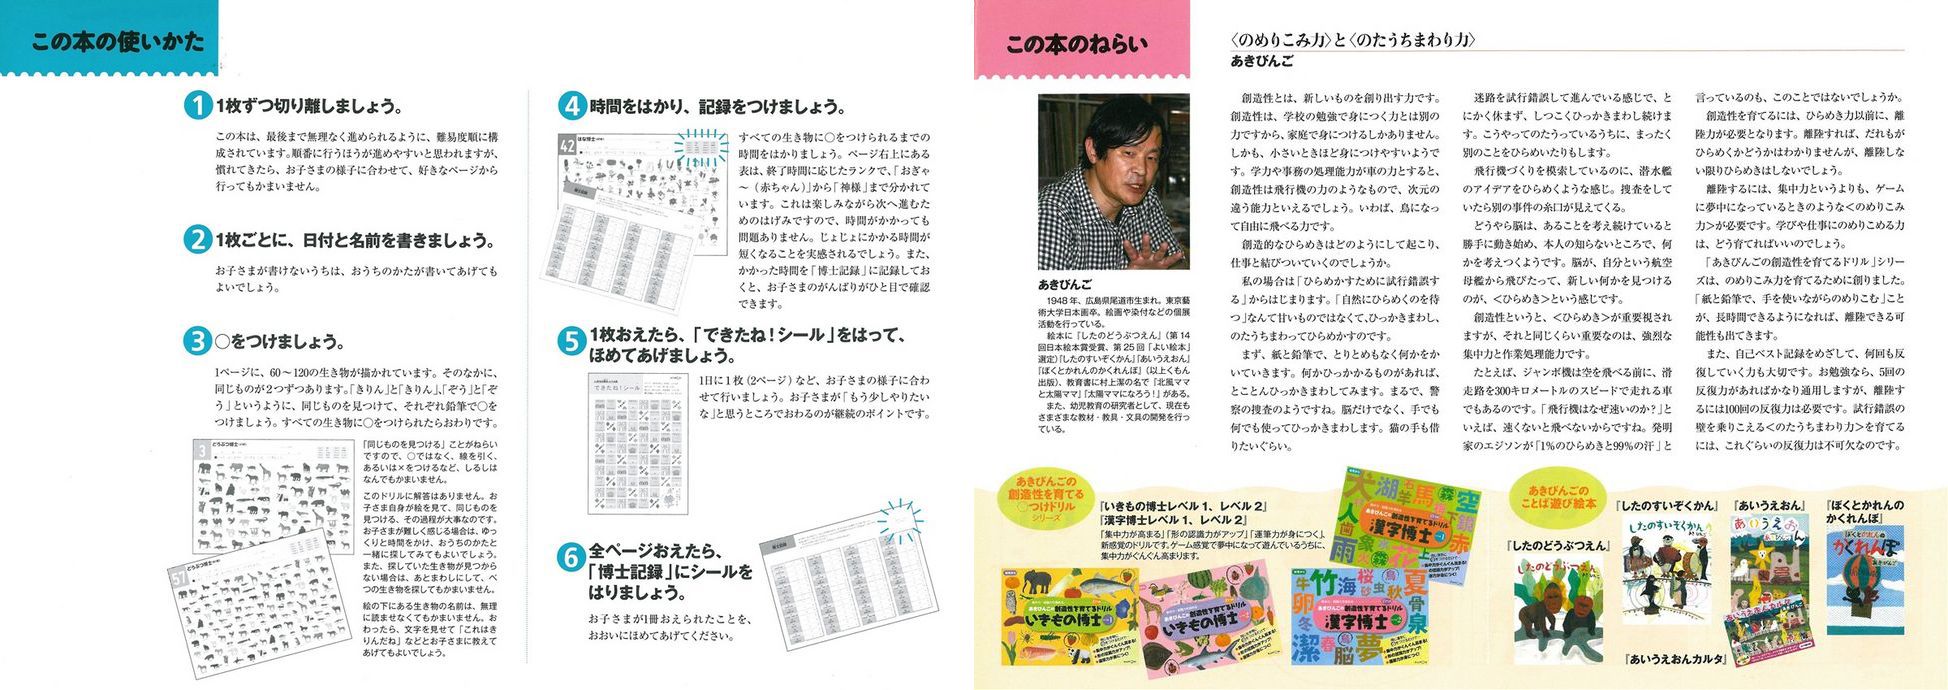 この本の使いかた
1 1枚ずつ切り離しましょう。
この本は、最後まで無理なく進められるように、難易度順に構
成されています。順番に行うほうが進めやすいと思われますが、
慣れてきたら、お子さまの様子に合わせて、好きなページから
行ってもかまいません。
2 1枚ごとに、日付と名前を書きましょう。
お子さまが書けないうちは、おうちのかたが書いてあげても
よいでしょう。
3 ○をつけましょう。
1ページに、60〜120の生き物が描かれています。そのなかに、
同じものが2つずつあります。「きりん」と「きりん」、「ぞう」と「ぞ
う」というように、同じものを見つけて、それぞれ鉛筆で○を
つけましょう。すべての生き物に○をつけられたらおわりです。
3 どうぶつ博士
57 どうぶつ博士
「同じものを見つける」ことがねらい
ですので、○ではなく、線を引く、
あるいは×をつけるなど、しるしは
なんでもかまいません。
このドリルに解答はありません。お
子さま自身が絵を見て、同じものを
見つける、その過程が大事なのです。
お子さまが難しく感じる場合は、ゆっ
くりと時間をかけ、おうちのかたと
一緒に探してみてもよいでしょう。
また、探していた生き物が見つから
ない場合は、あとまわしにして、べ
つの生き物を探してもかまいません。
絵の下にある生き物の名前は、無理
に読ませなくてもかまいません。お
わったら、文字を見せて「これはき
りんだね」などとお子さまに教えて
あげてもよいでしょう。
4 時間をはかり、記録をつけましょう。
42 はな博士
すべての生き物に○をつけられるまでの
時間をはかりましょう。ページ右上にある
表は、終了時間に応じたランクで、「おぎゃ
〜（赤ちゃん）」から「神様」まで分かれて
います。これは楽しみながら次へ進むた
めのはげみですので、時間がかかっても
問題ありません。じょじょにかかる時間が
短くなることを実感されるでしょう。また、
かかった時間を「博士記録」に記録してお
くと、お子さまのがんばりがひと目で確認
できます。
5 1枚おえたら、「できたね！シール」をはって、
ほめてあげましょう。
できたね！シール
1日に1枚（2ページ）など、お子さまの様子に合わ
せて行いましょう。お子さまが「もう少しやりたい
な」と思うところでおわるのが継続のポイントです。
6 全ページおえたら、
「博士記録」にシールを
はりましょう。
お子さまが1冊おえられたことを、
おおいにほめてあげてください。
博士記録
この本のねらい
あきびんご
1948年、広島県尾道市生まれ。東京藝
術大学日本画卒。絵画や染付などの個展
活動を行っている。
絵本に『したのどうぶつえん』（第14
回日本絵本賞受賞、第25回「よい絵本」
選定）『したのすいぞくかん』『あいうえおん』
『ぼくとかれんのかくれんぼ』（以上くもん
出版）、教育書に村上潔の名で『北風ママ
と太陽ママ』『太陽ママになろう！』がある。
また、幼児教育の研究者として、現在も
さまざまな教材・教具・文具の開発を行っ
ている。
〈のめりこみ力〉と〈のたうちまわり力〉
あきびんご
創造性とは、新しいものを創り出す力です。
創造性は、学校の勉強で身につく力とは別の
力ですから、家庭で身につけるしかありません。
しかも、小さいときほど身につけやすいようで
す。学力や事務の処理能力が車の力とすると、
創造性は飛行機の力のようなもので、次元の
違う能力といえるでしょう。いわば、鳥になっ
て自由に飛べる力です。
創造的なひらめきはどのようにして起こり、
仕事と結びついていくのでしょうか。
私の場合は「ひらめかすために試行錯誤す
る」からはじまります。「自然にひらめくのを待
つ」なんて甘いものではなくて、ひっかきまわし、
のたうちまわってひらめかすのです。
まず、紙と鉛筆で、とりとめもなく何かをか
いていきます。何かひっかかるものがあれば、
とことんひっかきまわしてみます。まるで、警
察の捜査のようですね。脳だけでなく、手でも
何でも使ってひっかきまわします。猫の手も借
りたいぐらい。
迷路を試行錯誤して進んでいる感じで、と
にかく休まず、しつこくひっかきまわし続けま
す。こうやってのたうっているうちに、まったく
別のことをひらめいたりもします。
飛行機づくりを模索しているのに、潜水艦
のアイデアをひらめくような感じ。捜査をして
いたら別の事件の糸口が見えてくる。
どうやら脳は、あることを考え続けていると
勝手に動き始め、本人の知らないところで、何
かを考えつくようです。脳が、自分という航空
母艦から飛びたって、新しい何かを見つける
のが、＜ひらめき＞という感じです。
創造性というと、＜ひらめき＞が重要視され
ますが、それと同じくらい重要なのは、強烈な
集中力と作業処理能力です。
たとえば、ジャンボ機は空を飛べる前に、滑
走路を300キロメートルのスピードで走れる車
でもあるのです。「飛行機はなぜ速いのか？」と
いえば、速くないと飛べないからですね。発明
家のエジソンが「1%のひらめきと99%の汗」と
言っているのも、このことではないでしょうか。
創造性を育てるには、ひらめき力以前に、離
陸力が必要となります。離陸すれば、だれもが
ひらめくかどうかはわかりませんが、離陸しな
い限りひらめきはしないでしょう。
離陸するには、集中力というよりも、ゲーム
に夢中になっているときのような＜のめりこみ
力＞が必要です。学びや仕事にのめりこめる力
は、どう育てればいいのでしょう。
「あきびんごの創造性を育てるドリル」シリー
ズは、のめりこみ力を育てるために創りました。
「紙と鉛筆で、手を使いながらのめりこむ」こと
が、長時間できるようになれば、離陸できる可
能性も出てきます。
また、自己ベスト記録をめざして、何回も反
復していく力も大切です。お勉強なら、5回の
反復力があればかなり通用しますが、離陸す
るには100回の反復力は必要です。試行錯誤の
壁を乗りこえる＜のたうちまわり力＞を育てる
には、これぐらいの反復力は不可欠なのです。
あきびんごの
創造性を育てる
○つけドリル
シリーズ
『いきもの博士レベル1、レベル2』
『漢字博士レベル1、レベル2』
「集中力が高まる」「形の認識力がアップ」「運筆力が身につく」、
新感覚のドリルです。ゲーム感覚で夢中になって遊んでいるうちに、
集中力がぐんぐん高まります。
あきびんごの創造性を育てるドリル
いきもの博士
あきびんごの創造性を育てるドリル
いきもの博士
あきびんごの創造性を育てるドリル
漢字博士
あきびんごの創造性を育てるドリル
漢字博士
あきびんごの
ことば遊び絵本
『したのどうぶつえん』
したのどうぶつえん
『したのすいぞくかん』
したのすいぞくかん
『あいうえおん』
あいうえおん
『あいうえおんカルタ』
『ぼくとかれんの
かくれんぼ』
ぼくとかれんの
かくれんぼ
あきびんご